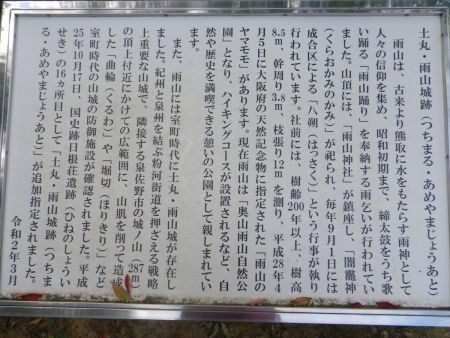 土丸・雨山城跡（つちまる・あめやまじょうあと）
雨山は、古来より熊取に水をもたらす雨神として
人々の信仰を集め、昭和初期まで、締太鼓をうち歌
い踊る「雨山踊り」を奉納する雨乞いが行われてい
ました。山頂には、「雨山神社」が鎮座し、「闇龗神
（くらおかみのかみ）」が祀られ、毎年9月1日には
成合区による「八朔（はっさく）」という行事が執り
行われています。社前には、樹齢200年以上、樹高
8.5m、幹周り3.8m、枝張り12mを測り、平成28年4
月5日に大阪府の天然記念物に指定された「雨山の
ヤマモモ」があります。現在雨山は「奥山雨山自然公
園」となり、ハイキングコースが設置されるなど、自
然や歴史を満喫できる憩いの公園として親しまれてい
ます。
また、雨山には室町時代に土丸・雨山城が存在し
ました。紀州と泉州を結ぶ粉河街道を押さえる戦略
上重要な山城で、隣接する泉佐野市の城ノ山（287m）
の頂上付近にかけての広範囲に、山肌を削って造成
した「曲輪（くるわ）」や「堀切（ほりきり）」など
室町時代の山城の防御施設が確認されました。平成
25年10月17日、国史跡日根荘遺跡（ひねのしょうい
せき）の16ヵ所目として「土丸・雨山城跡（つちま
る・あめやまじょうあと）」が追加指定されました。
令和2年3月